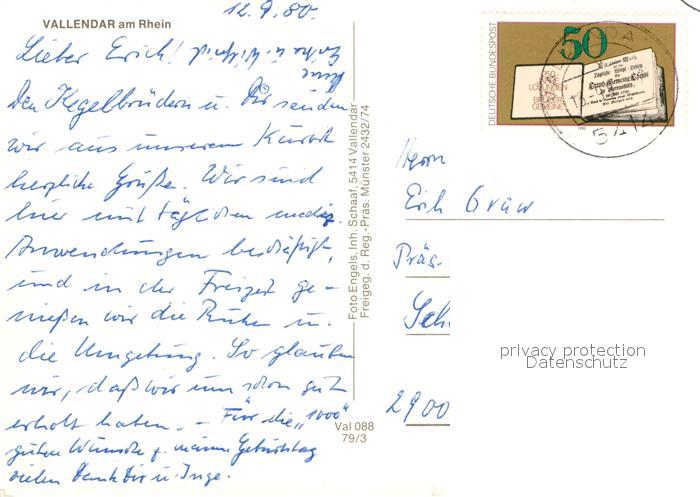 12.9.80.
VALLENDAR am Rhein
Lieber Erich!
Den Kegelbrüdern u. Dir senden
wir aus unserem Kurort
herzliche Grüße. Wir sind
hier mit tägl. den mediz.
Anwendungen beschäftigt,
und in der Freizeit ge-
nießen wir die Ruhe u.
die Umgebung. So glauben
wir, daß wir uns schon gut
erholt haben. – Für die "1000"
guten Wünsche z. meinem Geburtstag
vielen Dank Dir u. Inge.
Foto Engels, Inh. Schaaf, 5414 Vallendar
Freigeg. d. Reg.-Präs. Münster 2432/74
Val 088
79/3
DEUTSCHE BUNDESPOST
50
250
JAHRE
LOSUNGEN
DER
BRÜDER
GEMEINE
5414
Herrn
Erich Graw
Präs.
Sch
2900
privacy protection
Datenschutz